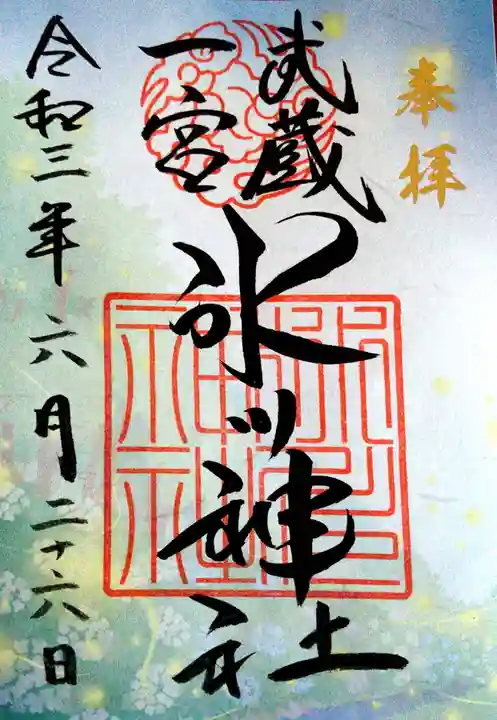 奉拝
武蔵
一宮
氷川神社
令和三年六月二十六日
氷川
神社